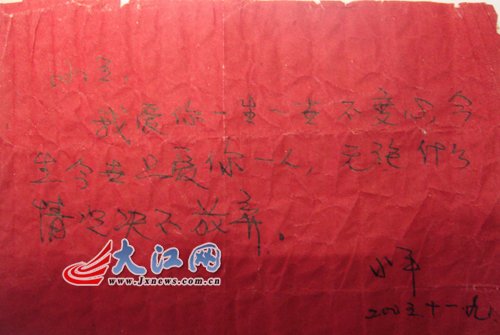 我爱你一生一世不变心,今
生今世只爱你一人,无论什么
情况决不放弃.
大江网
www.jxnews.com.cn
小平